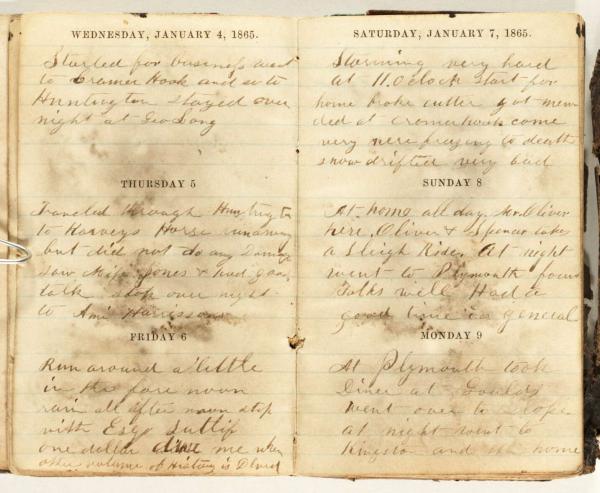 WEDNESDAY, JANUARY 4, 1865.
Started for business went
to Cramer Hook and so to
Huntington stayed over
night at Geo Long
THURSDAY 5
Traveled through Huntington
to Harveys Horse runaway
but did not do any Damage
saw Jones & had good
talk stop over night
to Ami Harrison
FRIDAY 6
Run around a little
in the fore noon
rain all after noon stop
with Esqr Sutlif
one dollar due me when
other volume of History is Dlvrd
SATURDAY, JANUARY 7, 1865.
Storming very hard
at 11.Oclock start for
home broke cutter got men
ded at cromerhook come
very nere frezing to death
snow drifted very bad
SUNDAY 8
At home all day. Mr. Oliver
here. Oliver & Spencer takes
a Sleigh Ride. At night
went to Plymouth found
Folks well Had a
good time in general
MONDAY 9
At Plymouth took
Diner at Goulds
went over to
at night went to
Kingston and home